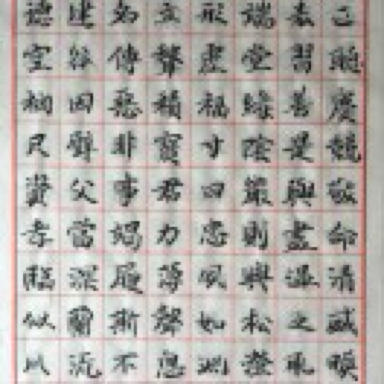 德建名立形端表正
空谷傳聲虛堂習聽
禍因惡積福緣善慶
尺璧非寶寸陰是競
資父事君曰嚴與敬
孝當竭力忠則盡命
臨深履薄夙興溫凊
似蘭斯馨如松之盛
川流不息淵澄取映